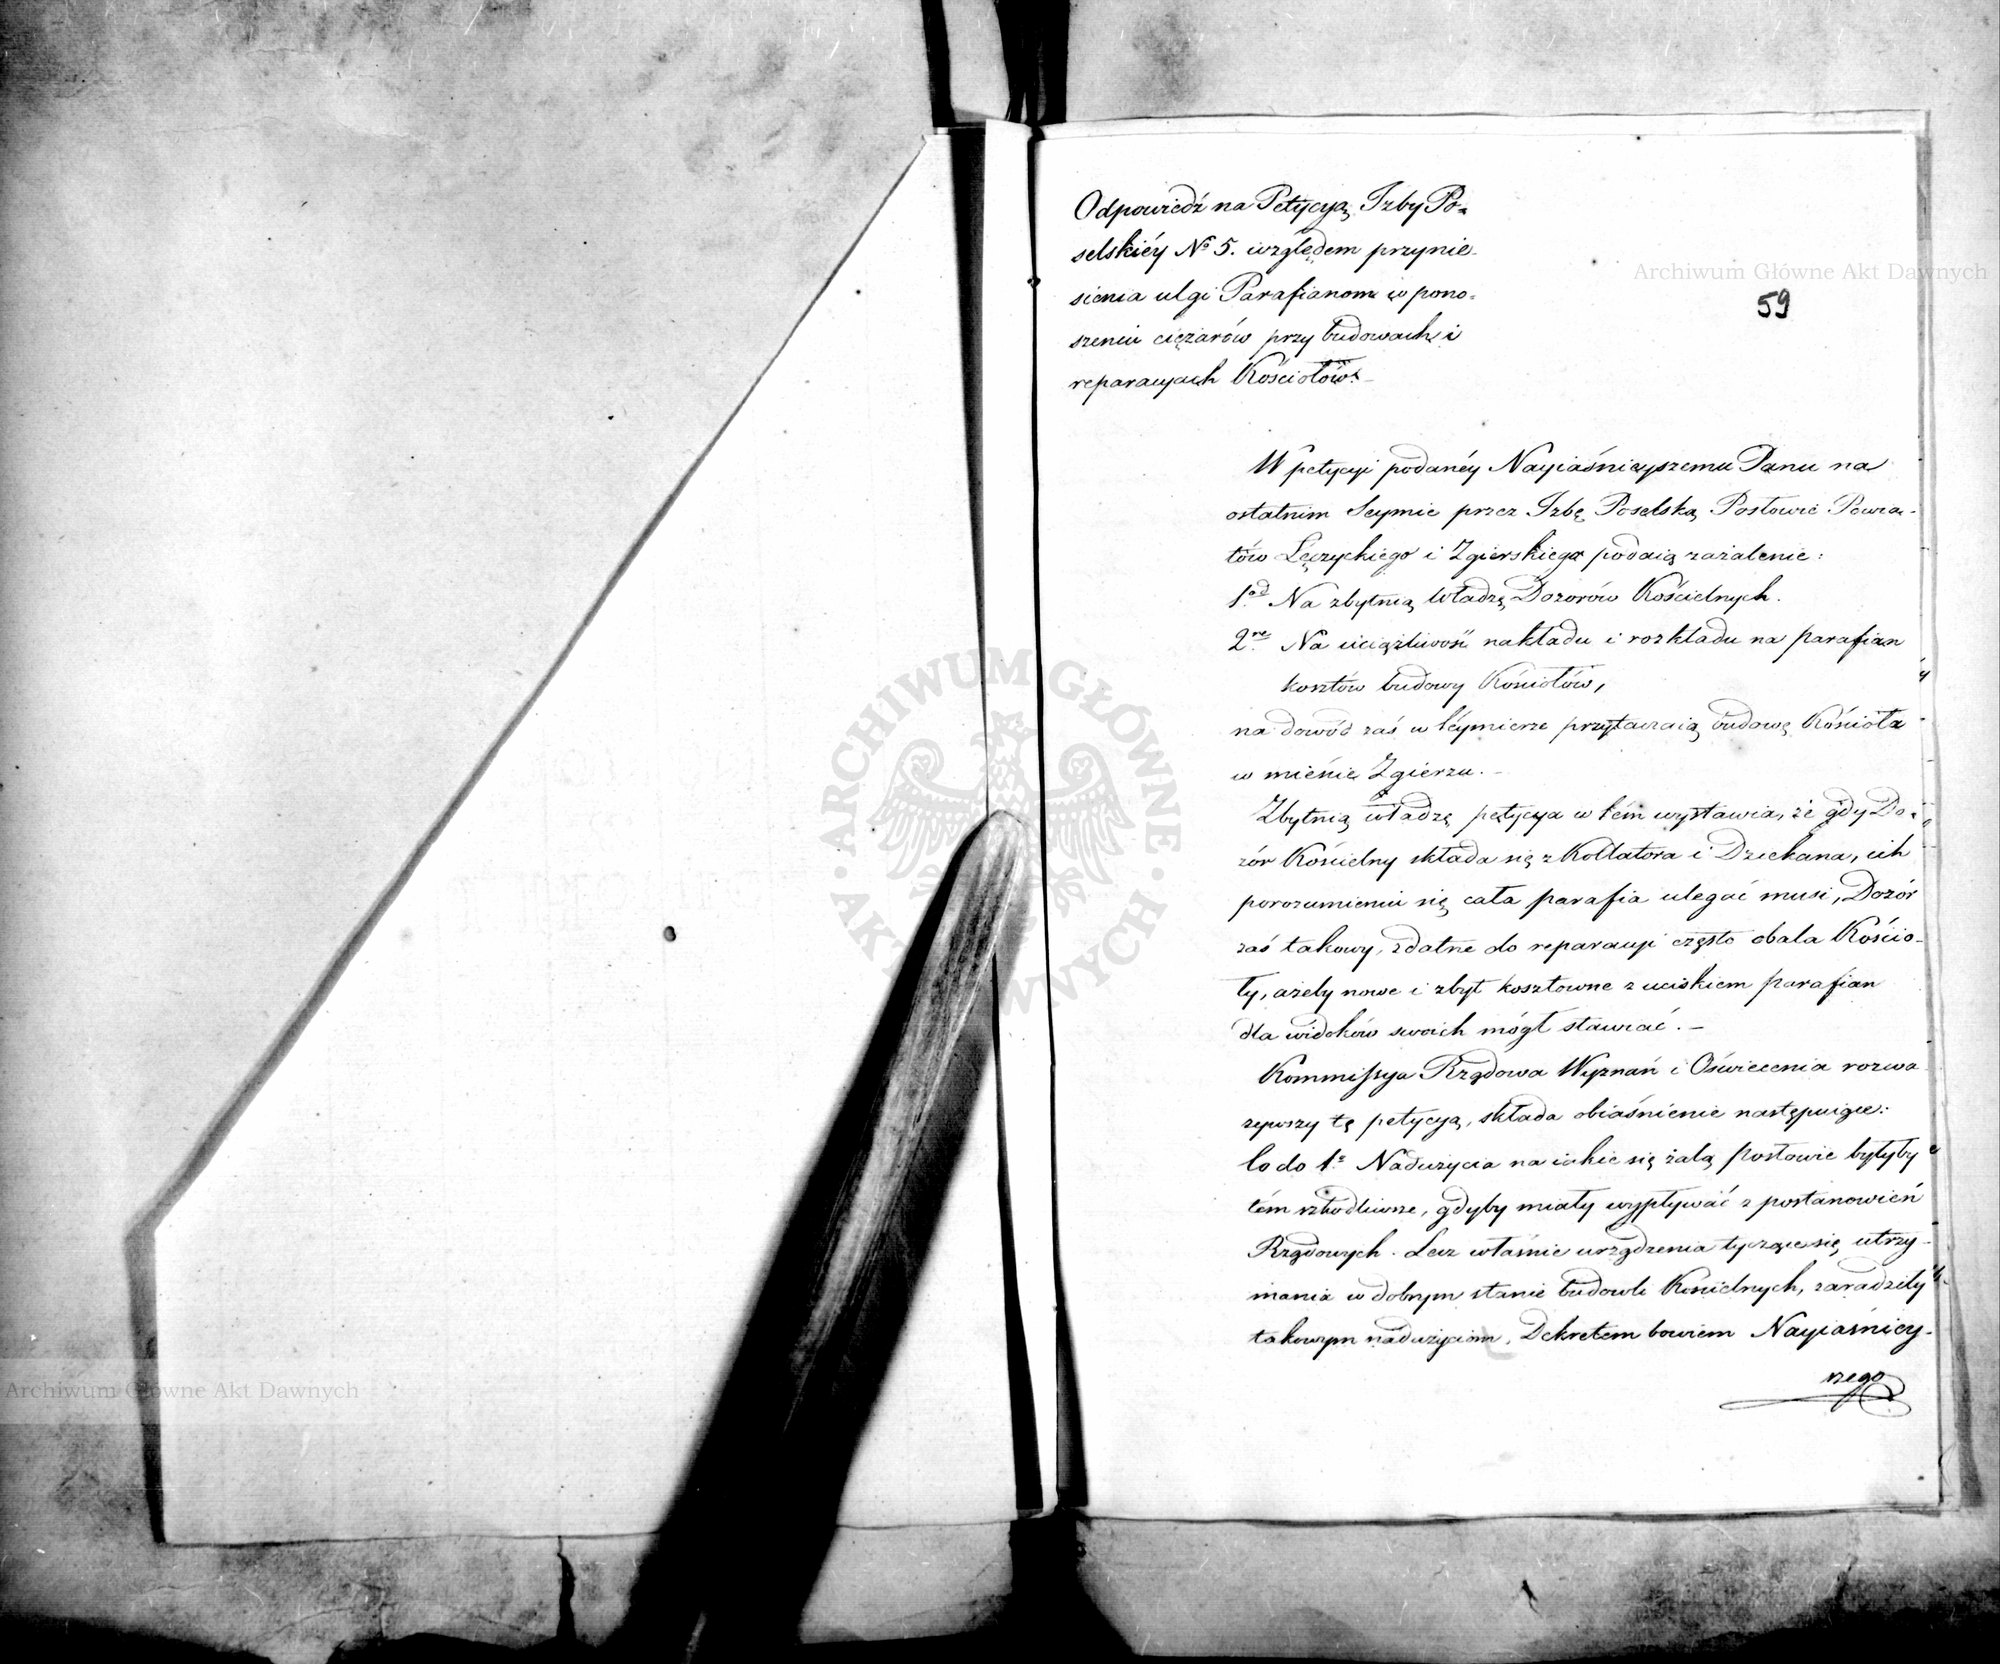 Odpowiedź na Petycyą Izby Po=
selskiéy Nº 5. względem przynie-
sienia ulgi Parafianom w pono=
szeniu ciężarów przy budowach i
reparacyach Kościołów.
59
W petycyi podanéy Nayiaśnieyszemu Panu na
ostatnim Seymie przez Izbę Poselską Posłowie Powia-
tów Łęczyckiego i Zgierskiego podaią zażalenie:
1.od Na zbytnią władzę Dozorów Kościelnych.
2.re Na uciążliwość nakładu i rozkładu na parafian
kosztów budowy Kościołów,
na dowód zaś w téymierze przytaczaią budowę Kościoła
w mieście Zgierzu. -
Zbytnią władzę petycya w tém wystawia, że gdy Do=
zór Kościelny składa się z Kollatora i Dziekana, ich
porozumieniu się cała parafia ulegać musi, Dozór
zaś takowy, zdatne do reparacyi często obala Kościo-
ły, ażeby nowe i zbyt kosztowne z uciskiem parafian
dla widoków swoich mógł stawiać. -
Kommissya Rządowa Wyznań i Oświecenia rozwa
żywszy tę petycyą, składa obiaśnienie następuiące:
Co do 1º Nadużycia na iakie się żalą posłowie byłyby
tém szkodliwsze, gdyby miały wypływać z postanowień
Rządowych. Lecz właśnie urządzenia tyczące się utrzy-
mania w dobrym stanie budowli Kościelnych, zaradziły
takowym nadużyciom. Dekretem bowiem Nayiaśniey-
szego
Archiwum Główne Akt Dawnych
Archiwum Główne Akt Dawnych
ARCHIWUM GŁÓWNE